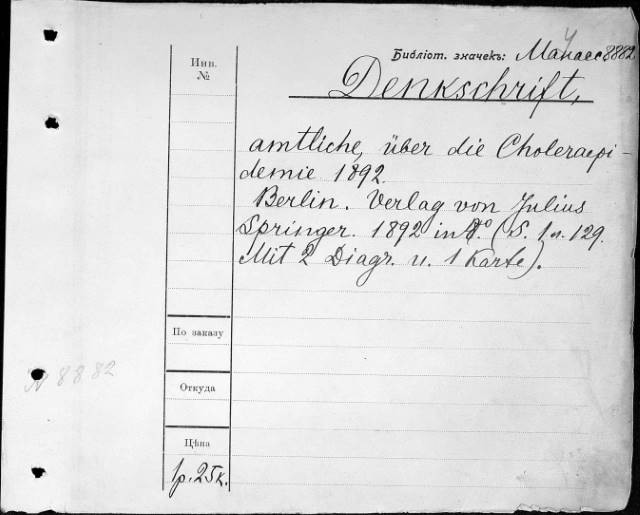 Библіот. значекъ: Манассе 8882
Инв.
№
Denkschrift,
amtliche, über die Choleraepi-
demie 1892.
Berlin. Verlag von Julius
Springer. 1892 in 4.º (S. 1 u. 129.
Mit 2 Diagr. u. 1 Karte).
По заказу
N 8882
Откуда
Цѣна
1р. 25к.